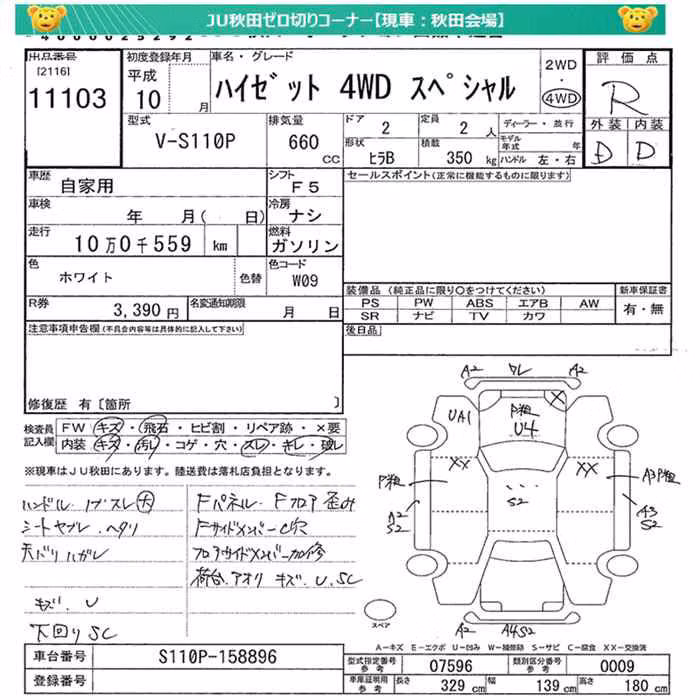 JU秋田ゼロ切りコーナー【現車：秋田会場】
出品番号 [2116] 11103
初度登録年月 平成 10 月
車名・グレード ハイゼット 4WD スペシャル
2WD・4WD
評価点 R
外装 D 内装 D
型式 V-S110P
排気量 660 CC
ドア 2 定員 2 人
形状 ヒラB 積載 350 kg
ディーラー・並行
モデル年式 年
ハンドル 左・右
車歴 自家用
シフト F5
車検 年 月( 日)
冷房 ナシ
走行 10万0千559 km
燃料 ガソリン
色 ホワイト 色替
色コード W09
R券 3,390円
名変通知期限 月 日
セールスポイント(正常に機能するものに限ります)
装備品 (純正品に限り○をつけてください)
PS PW ABS エアB AW
SR ナビ TV カワ
新車保証書 有・無
後日品
注意事項申告欄(不具合内容等は具体的に記入して下さい)
修復歴 有〔箇所 〕
検査員記入欄
FW キズ・飛石・ヒビ割・リペア跡・×要
内装 キズ・汚レ・コゲ・穴・スレ・キレ・破レ
※現車はJU秋田にあります。陸送費は落札店負担となります。
ハンドル・ノブスレ大
シートヤブレ・ヘタリ
天バリハガレ
キズ、U
下回りSC
Fパネル・Fフロア歪み
FサイドメンバーC穴
フロアサイドメンバー加修
荷台、アオリ キズ、U、SC
A2 ワレ A2
UA1 P粗 U4 X
XX XX
P粗 A3P粗
S2
A2 S2
A3 S2
A2 A4S2
スペア
A－キズ E－エクボ U－凹み W－補修跡 S－サビ C－腐食 XX－交換済
車台番号 S110P-158896
登録番号
型式指定番号 参考 07596 類別区分番号 参考 0009
車庫証明用 参考 長さ 329 cm 幅 139 cm 高さ 180 cm